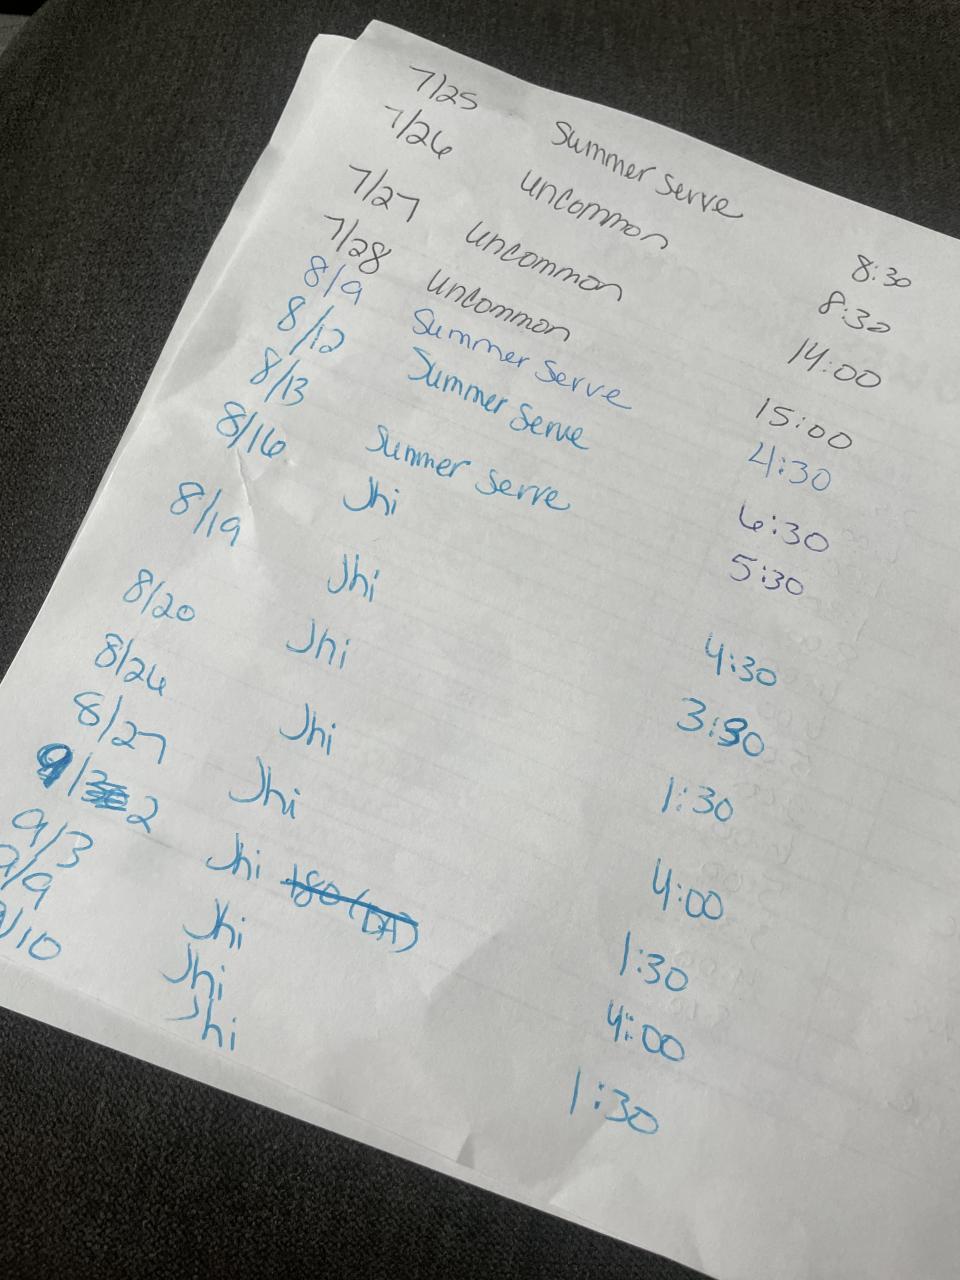 7/25 Summer Serve 8:30
7/26 uncommon 8:30
7/27 uncommon 14:00
7/28 uncommon 15:00
8/9 Summer Serve 4:30
8/12 Summer Serve 6:30
8/13 Summer Serve 5:30
8/16 Jhi 4:30
8/19 Jhi 3:30
8/20 Jhi 1:30
8/26 Jhi 4:00
8/27 Jhi 1:30
9/2 Jhi 4:00
9/3 Jhi 1:30
9/9 Jhi
9/10 Jhi